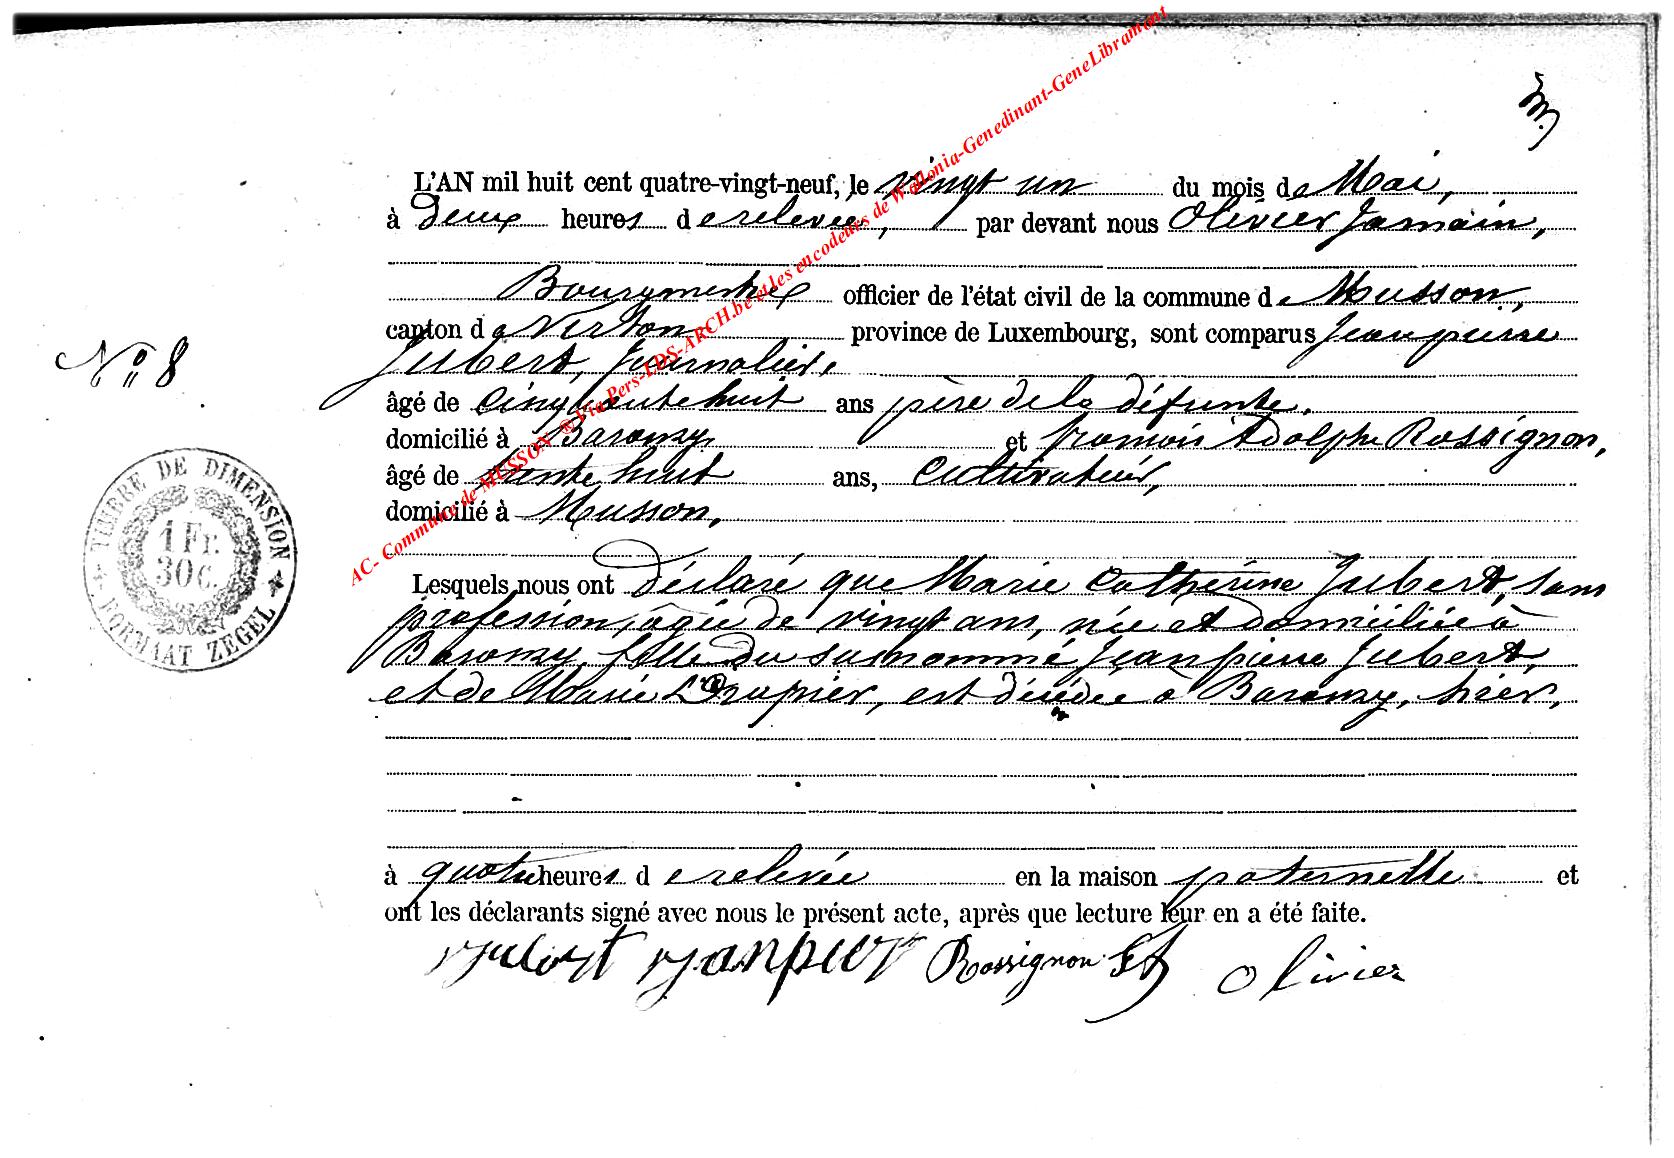 L'AN mil huit cent quatre-vingt-neuf, le vingt un du mois de Mai,
à Deux heures de relevée, par devant nous Olivier Jamain,
Bourgmestre officier de l'état civil de la commune de Musson,
canton de Virton province de Luxembourg, sont comparus Jeanpierre
Jubert, Journalier,
N° 8
âgé de Cinquante huit ans père de la défunte.
domicilié à Baranzy et francois Adolphe Rossignon,
âgé de trente huit ans, Cultivateur,
domicilié à Musson,
Lesquels nous ont déclaré que Marie Catherine Jubert, sans
profession, âgée de vingt ans, née et domiciliée à
Baranzy, fille du susnommé Jeanpierre Jubert,
et de Marie Drapier, est décédée à Baranzy, hier,
à quatre heures de relevée en la maison paternelle et
ont les déclarants signé avec nous le présent acte, après que lecture leur en a été faite.
Jubert Janpier Rossignon Olivier
TIMBRE DE DIMENSION
1 Fr.
30 C.
FORMAAT ZEGEL
AC- Commune de MUSSON ® Via Pers-LDS-ARCH.be et les encodeurs de Wallonia-Genedinant-GeneLibramont